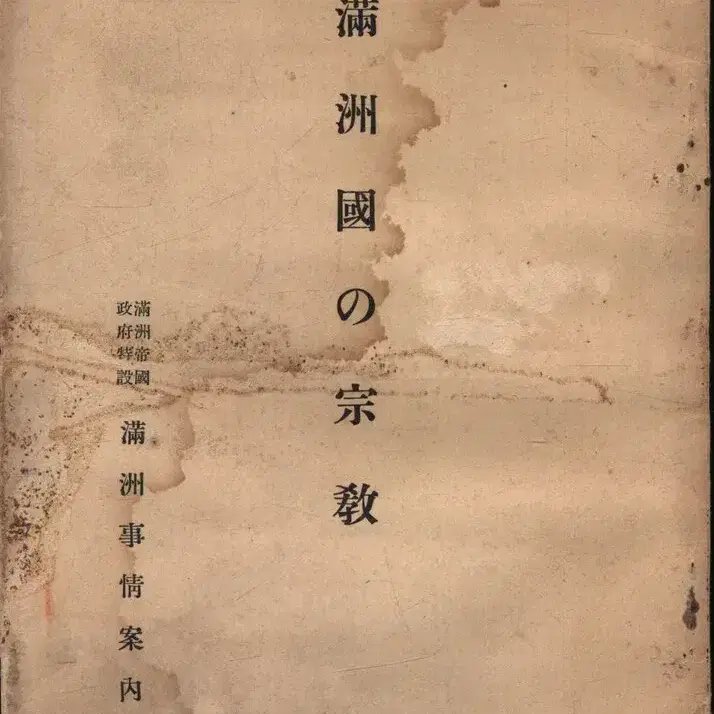 滿洲國の宗教
滿洲帝國
政府特設
滿洲事情案內